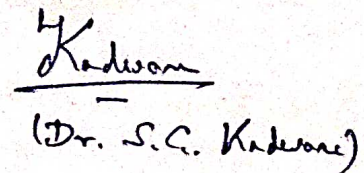 Kadwane
(Dr. S.G. Kadwane)